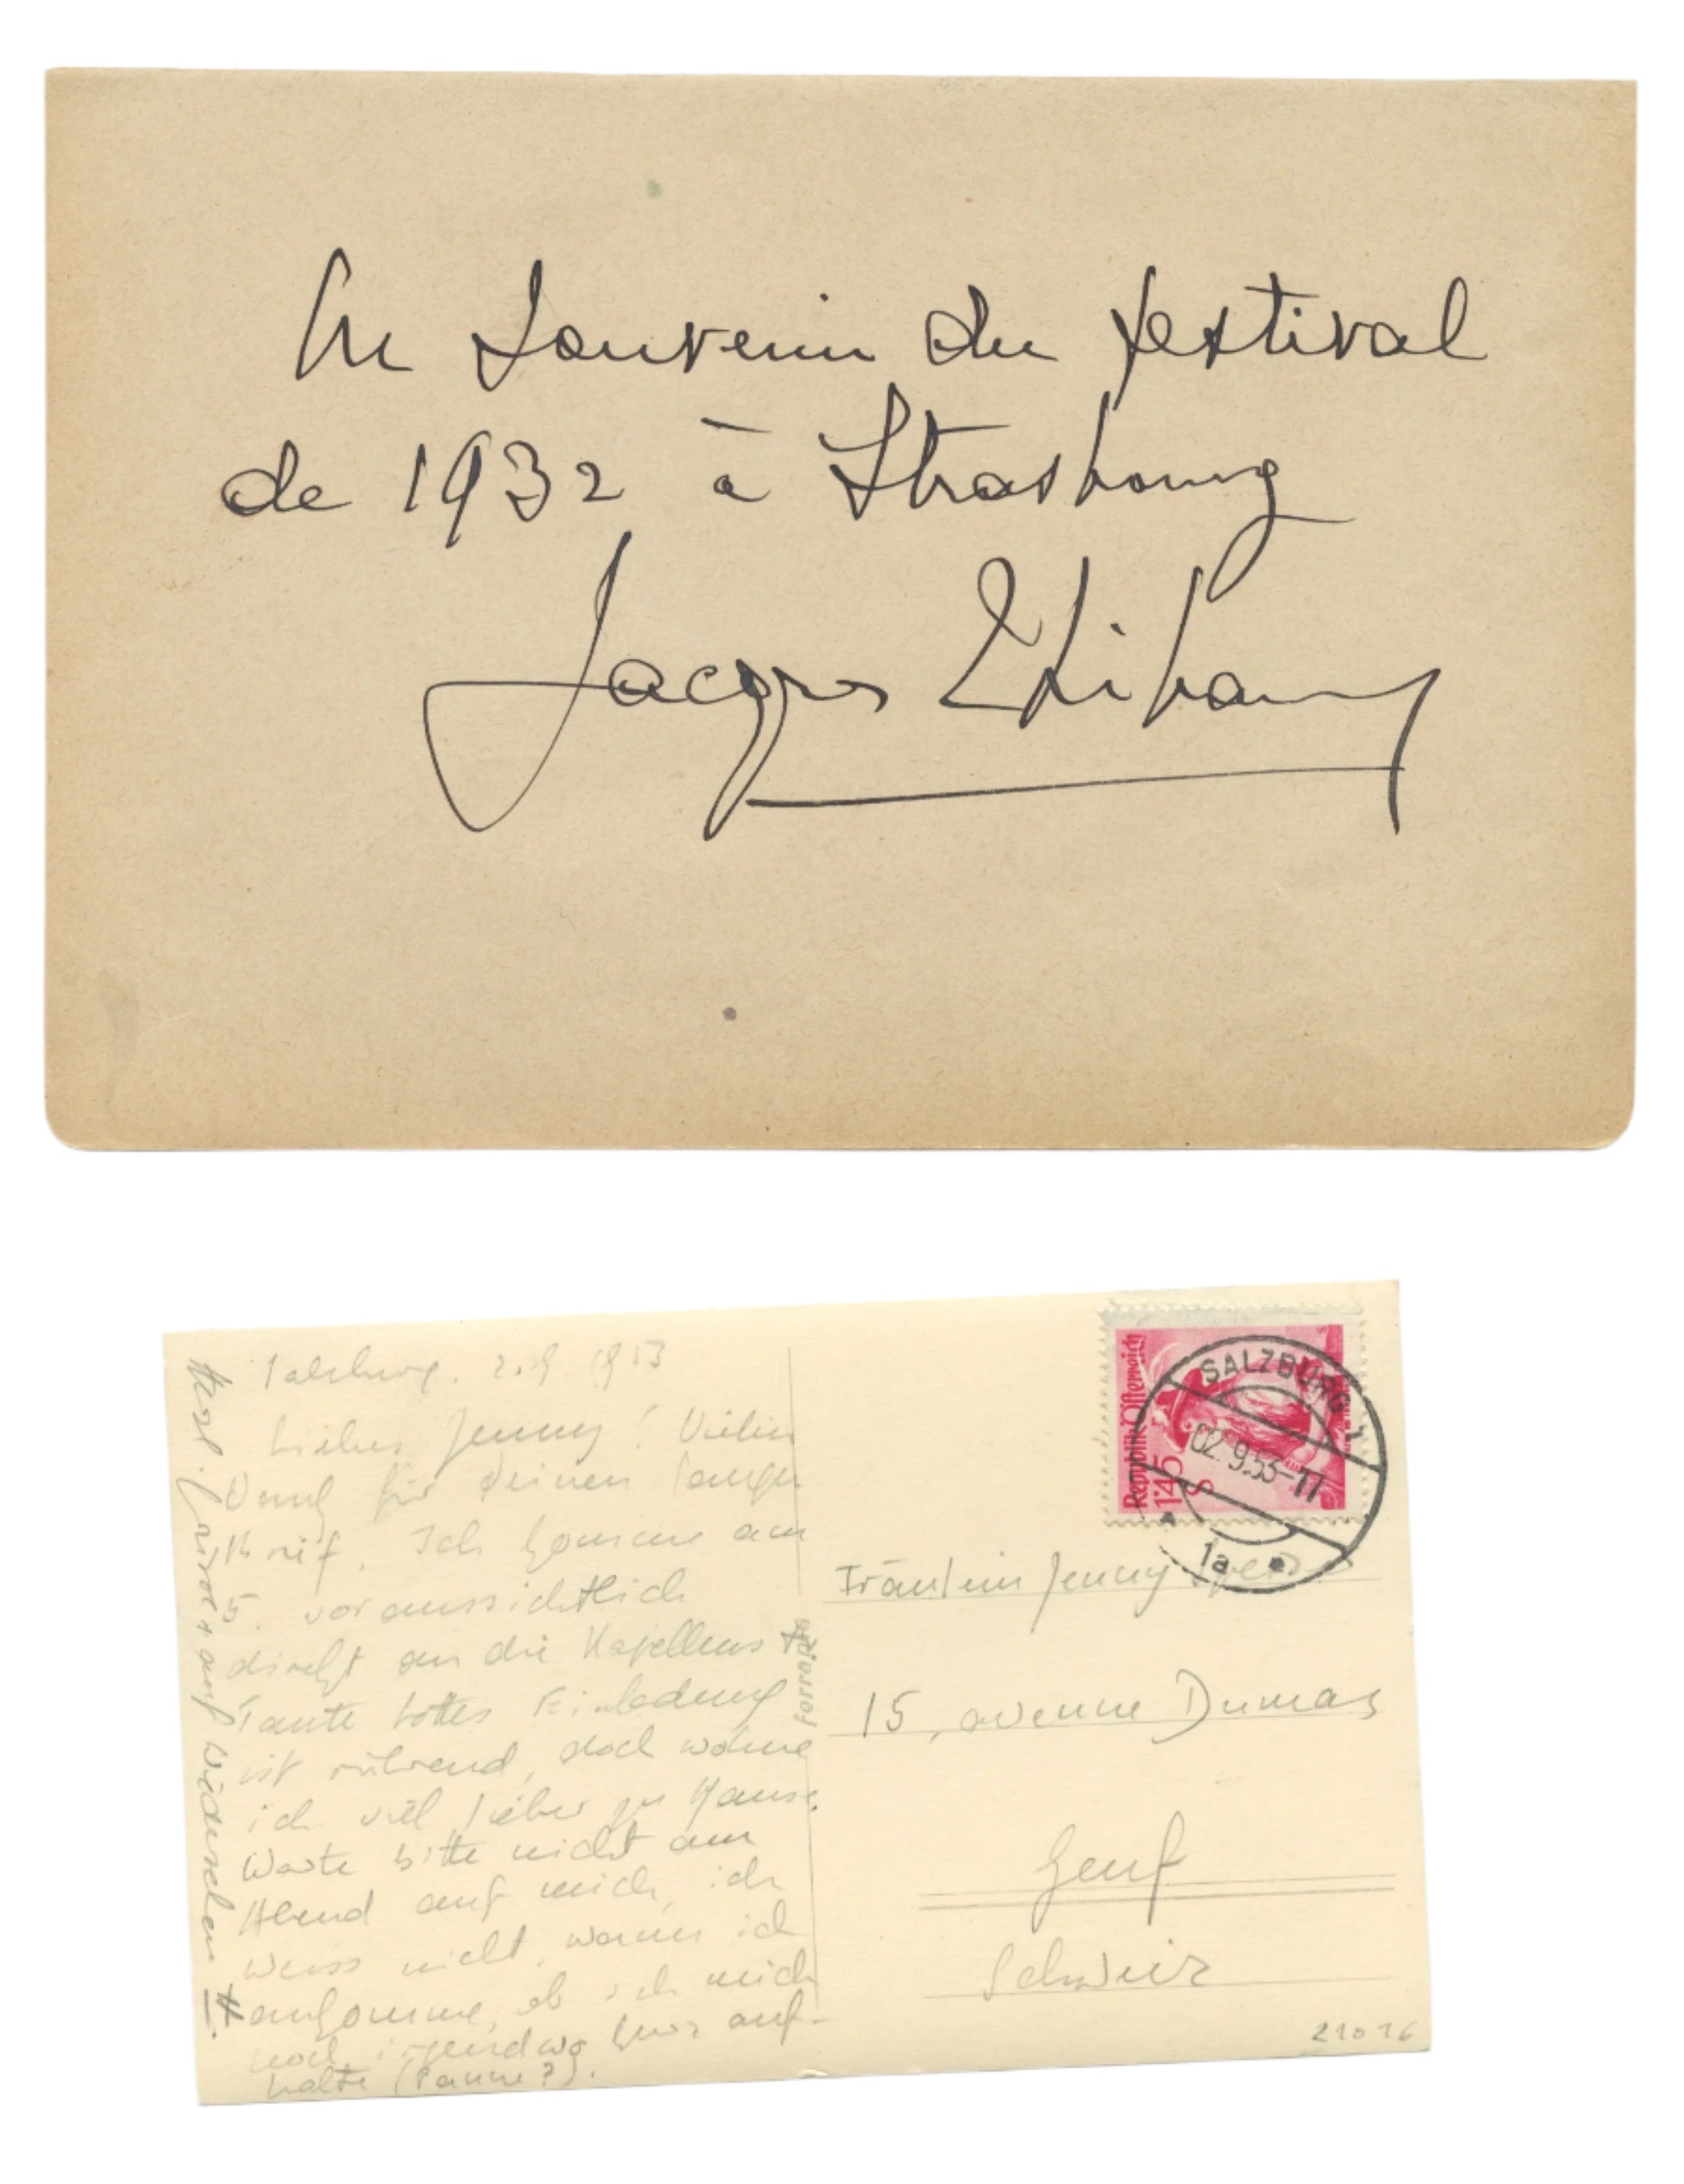 Un Souvenir du festival
de 1932 à Strasbourg
Jacques Thibaud
Salzburg. 2.9 1953
Liebes Jenny! Vielen
Dank für Deinen langen
Brief. Ich komme am
5. voraussichtlich
direkt an die Kapellenstr
Tante Lottes Einladung
ist rührend, doch wohne
ich viel lieber zu Hause.
Warte bitte nicht am
Abend auf mich, ich
weiss nicht, wann ich
ankomme, ob ich mich
noch irgendwo kurz auf-
halte (Panne?).
Herzl. Gruss + auf Wiedersehen H.
ferrania
Republik Österreich
1·45
S
SALZBURG 1
02.9.53-17
1a
Fräulein Jenny
15, avenue Dumas
Genf
Schweiz
21016